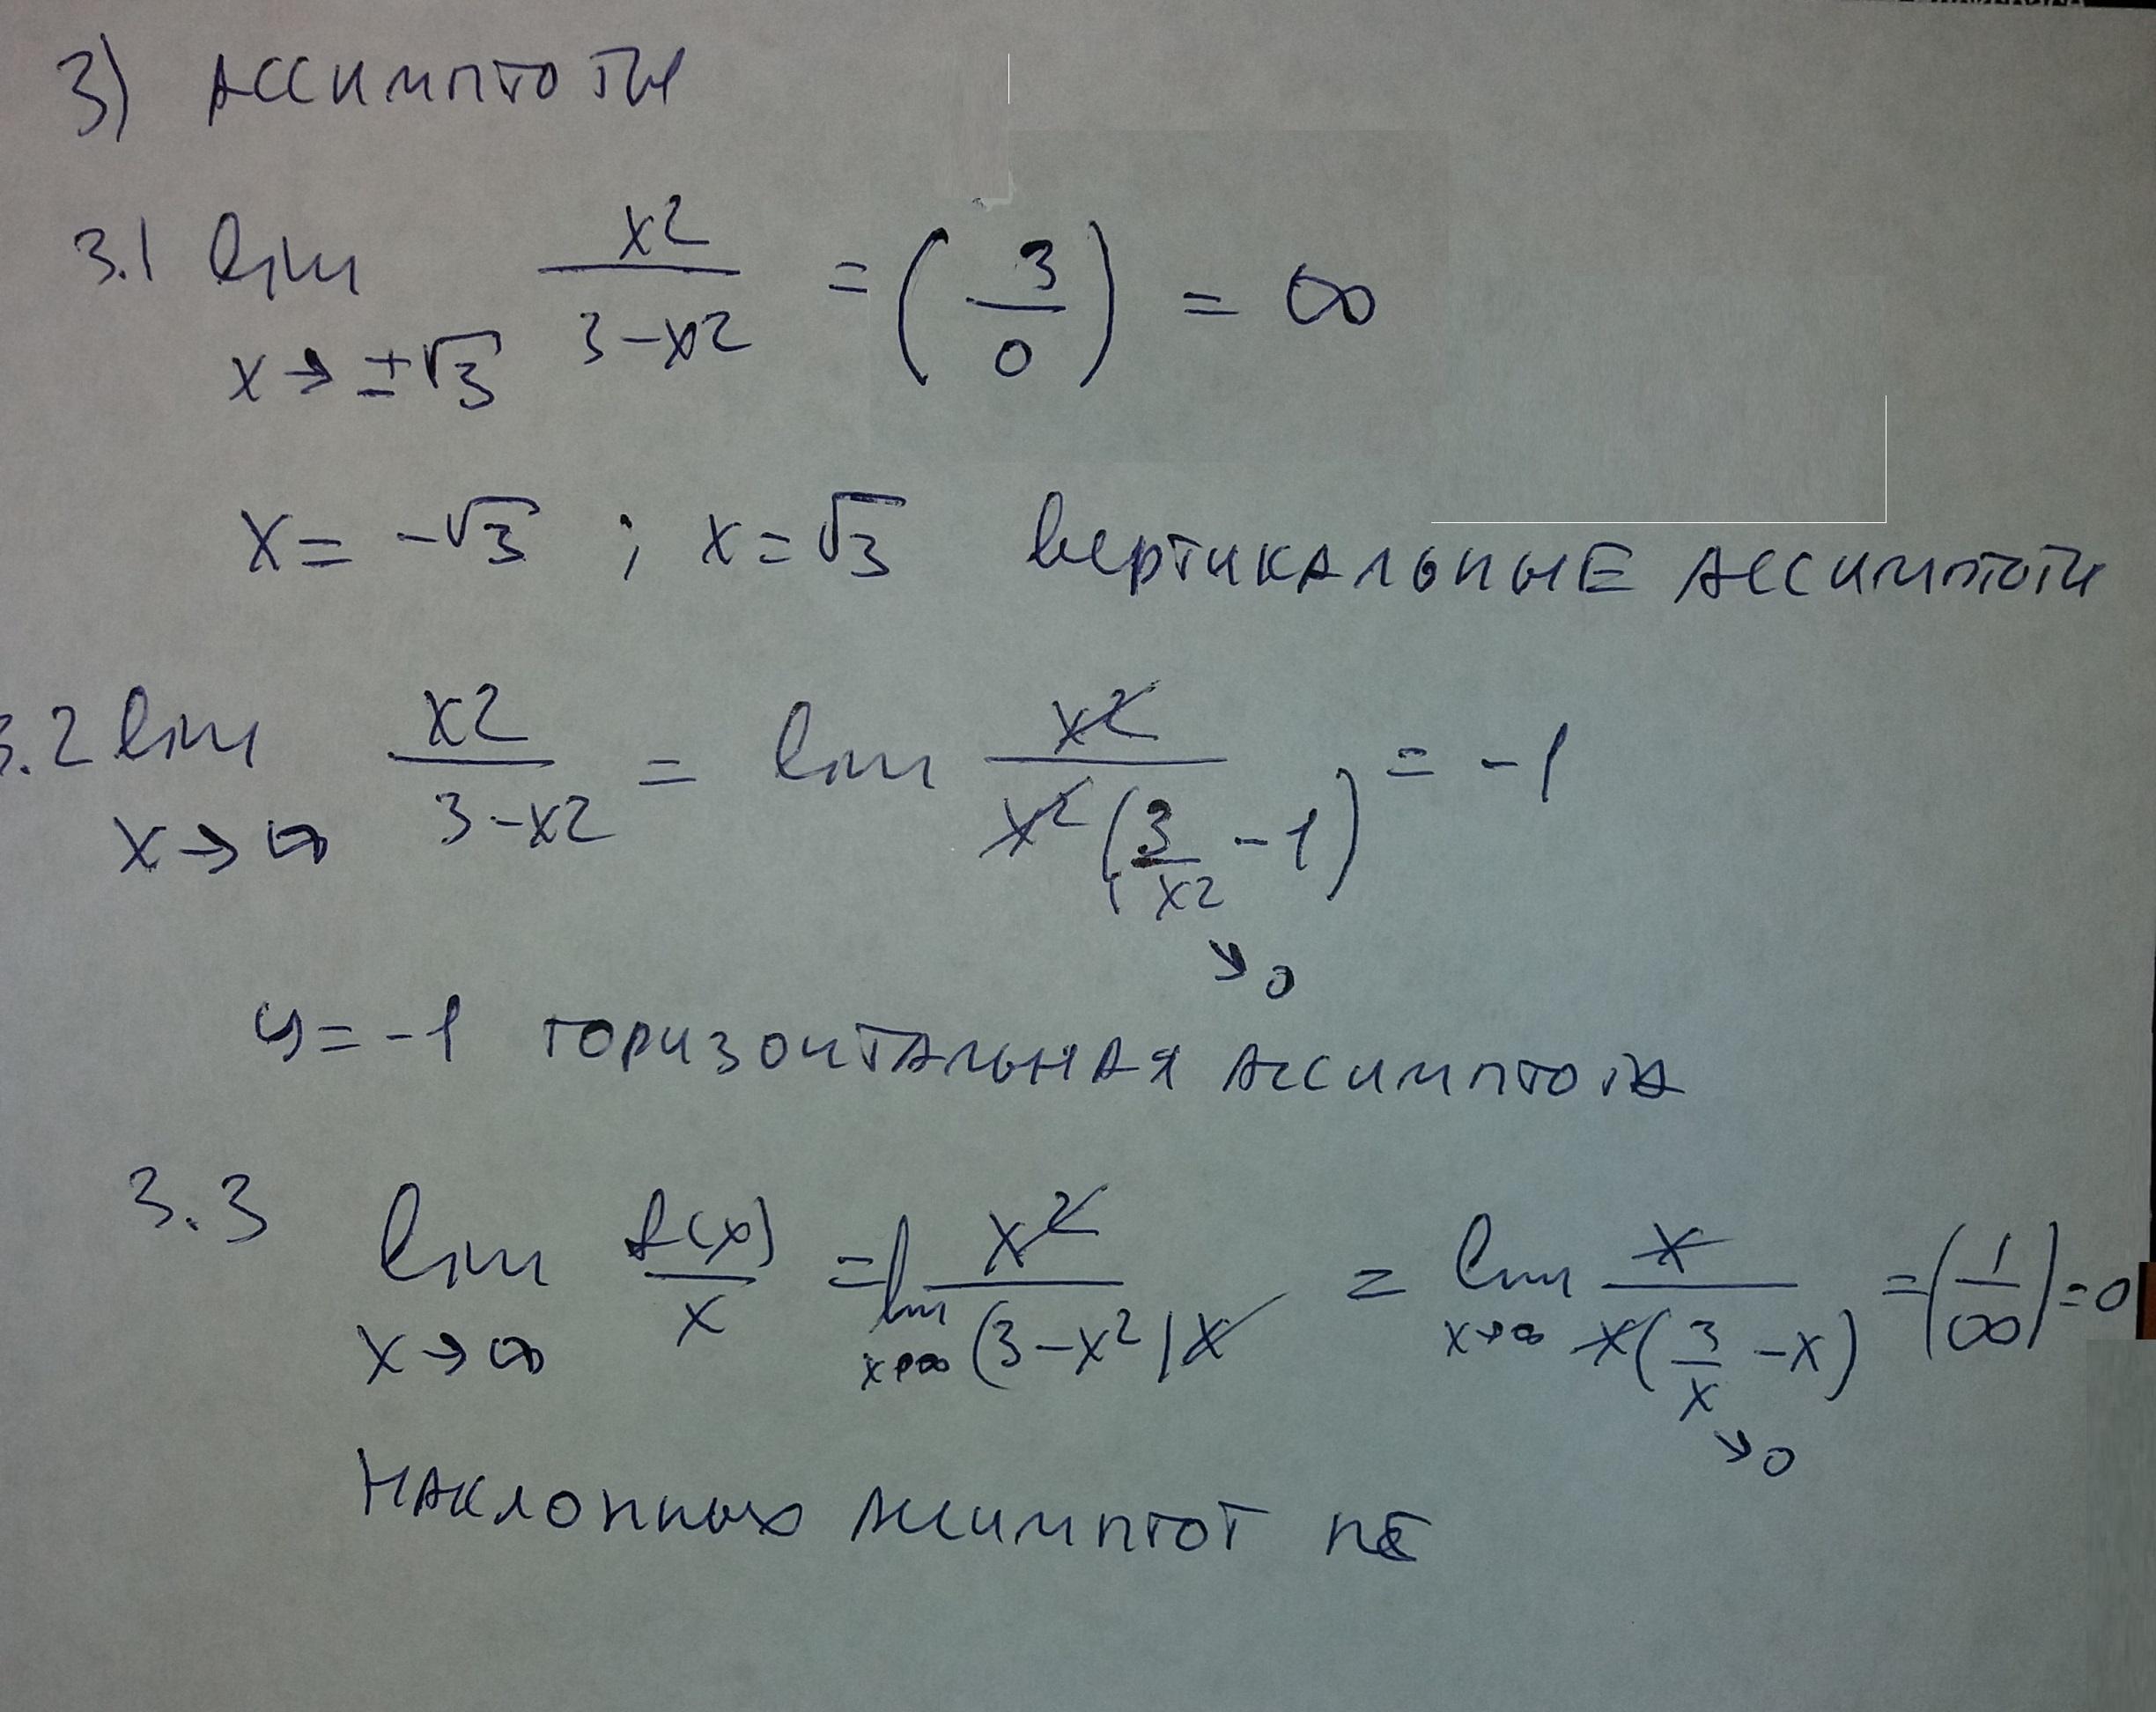 3) Ассимптоты
3.1 lim x→±√3 x2/(3-x2) = (3/0) = ∞
x = -√3 ; x = √3 вертикальные ассимптоты
3.2 lim x→∞ x2/(3-x2) = lim x2/(x2(3/x2 - 1)) = -1
↘0
y = -1 горизонтальная ассимптота
3.3 lim x→∞ f(x)/x = lim x→∞ x2/((3-x2)x) = lim x→∞ x/(x(3/x - x)) = (1/∞) = 0
↘0
наклонных ассимптот